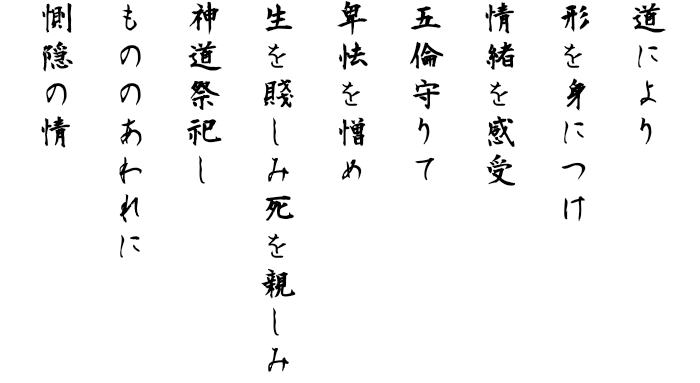 道により
形を身につけ
情緒を感受
五倫守りて
卑怯を憎め
生を賤しみ死を親しみ
神道祭祀し
もののあわれに
惻隠の情